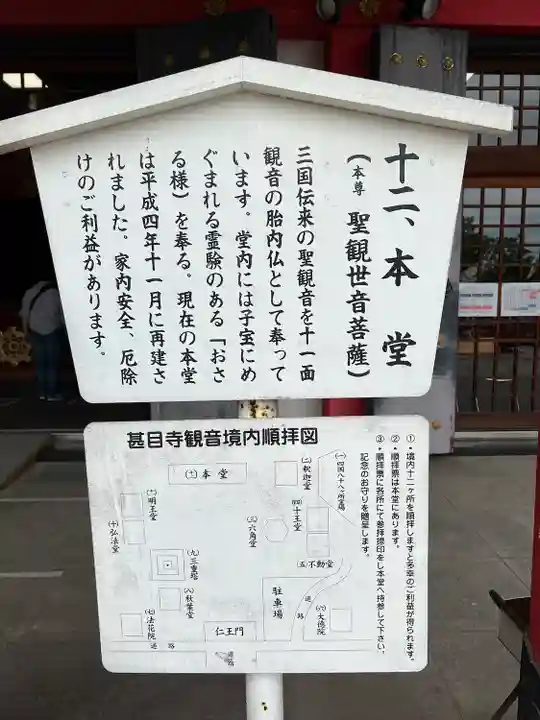 十二、本堂
(本尊 聖観世音菩薩)
三国伝来の聖観音を十一面
観音の胎内仏として奉って
います。堂内には子宝にめ
ぐまれる霊験のある「おさ
る様」を奉る。現在の本堂
は平成四年十一月に再建さ
れました。家内安全、厄除
けのご利益があります。
甚目寺観音境内順拝図
①・境内十二ヶ所を順拝しますと多幸のご利益が得られます。
②・順拝票は本堂にあります。
③・順拝票に各所にて参拝捺印をし本堂へ持参して下さい。
記念のお守りを贈呈します。
(一)四国八十八ヶ所霊場
(二)釈迦堂
(十二)本堂
(四)十王堂
(三)六角堂
(十一)明王堂
(十)弘法堂
(五)不動堂
(九)三重塔
(八)秋葉堂
駐車場
道路
(六)大徳院
(七)法花院
仁王門
道路
道路